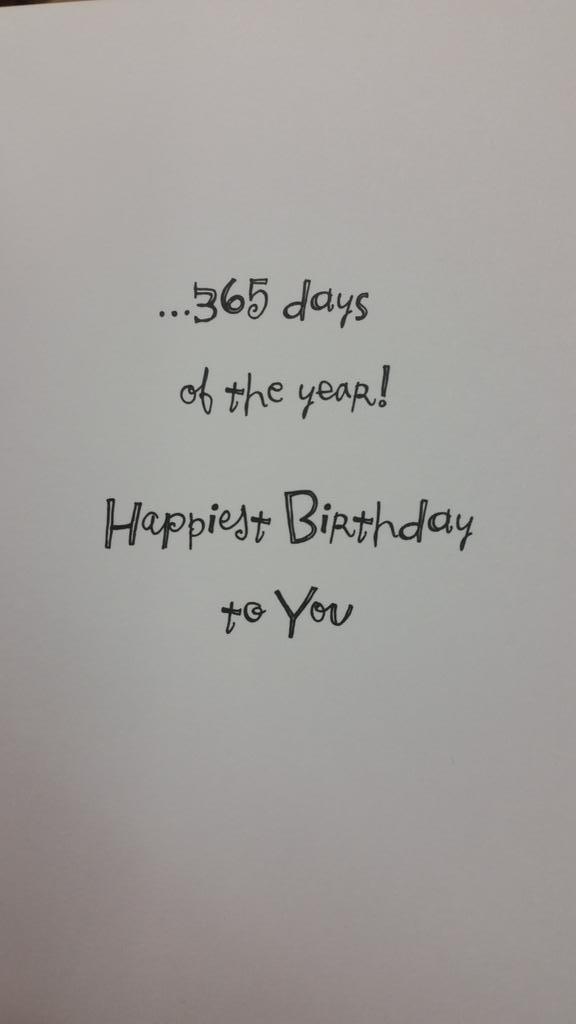 ...365 days
of the year!
Happiest Birthday
to You